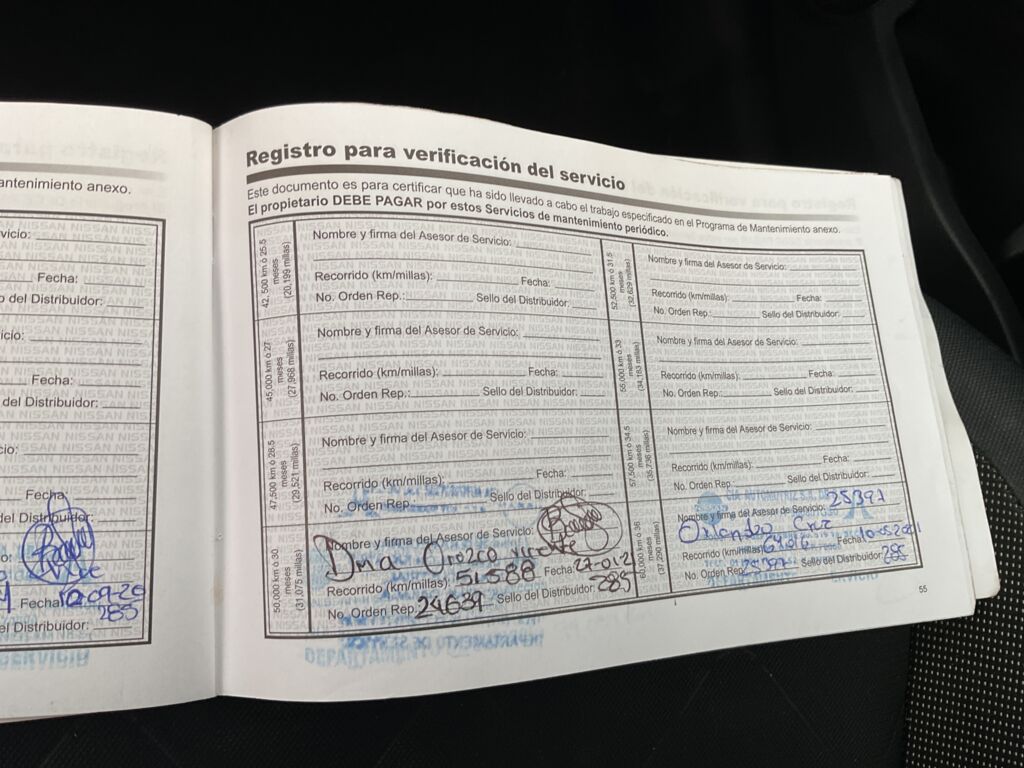 antenimiento anexo.
vicio:
Fecha:
o del Distribuidor:
icio:
Fecha:
del Distribuidor:
cio:
Fecha
del Distribuidor:
Fecha: 02-09-20
285
el Distribuidor:
SERVICIO
Registro para verificación del servicio
Este documento es para certificar que ha sido llevado a cabo el trabajo especificado en el Programa de Mantenimiento anexo.
El propietario DEBE PAGAR por estos Servicios de mantenimiento periódico.
42, 500 km ó 25.5
meses
(20,199 millas)
Nombre y firma del Asesor de Servicio:
Recorrido (km/millas): Fecha:
No. Orden Rep.: Sello del Distribuidor:
45,000 km ó 27
meses
(27,968 millas)
Nombre y firma del Asesor de Servicio:
Recorrido (km/millas): Fecha:
No. Orden Rep.: Sello del Distribuidor:
47,500 km ó 28.5
meses
(29,521 millas)
Nombre y firma del Asesor de Servicio:
Recorrido (km/millas): Fecha:
No. Orden Rep. Sello del Distribuidor:
50,000 km ó 30
meses
(31,075 millas)
Nombre y firma del Asesor de Servicio:
Orozco Vicente
Recorrido (km/millas): 51588 Fecha: 27-01-21
No. Orden Rep. 24639 Sello del Distribuidor: 285
DEPARTAMENTO DE SERVICIO
52,500 km ó 31.5
meses
(32,629 millas)
Nombre y firma del Asesor de Servicio:
Recorrido (km/millas): Fecha:
No. Orden Rep.: Sello del Distribuidor:
55,000 km ó 33
meses
(34,183 millas)
Nombre y firma del Asesor de Servicio:
Recorrido (km/millas): Fecha:
No. Orden Rep.: Sello del Distribuidor:
57,500 km ó 34.5
meses
(35,736 millas)
Nombre y firma del Asesor de Servicio:
Recorrido (km/millas): Fecha:
No. Orden Rep. Sello del Distribuidor:
25397
60,000 km ó 36
meses
(37,290 millas)
Nombre y firma del Asesor de Servicio:
Cruz
Recorrido (km/millas): Fecha: 10-05-2021
No. Orden Rep. 25397 Sello del Distribuidor: 285
SERVICIO
55